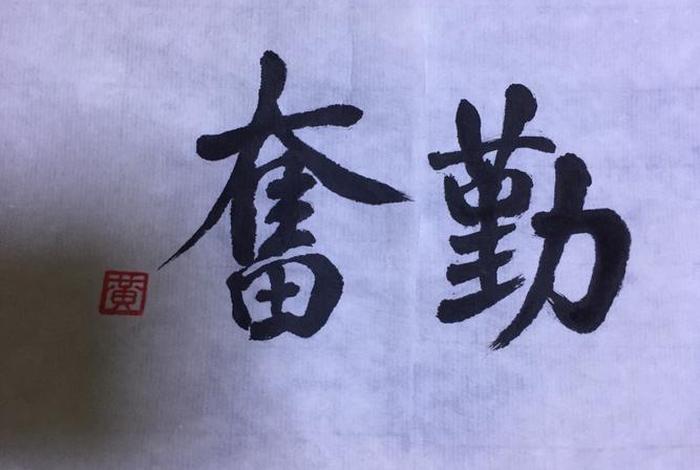 勤奮
黄